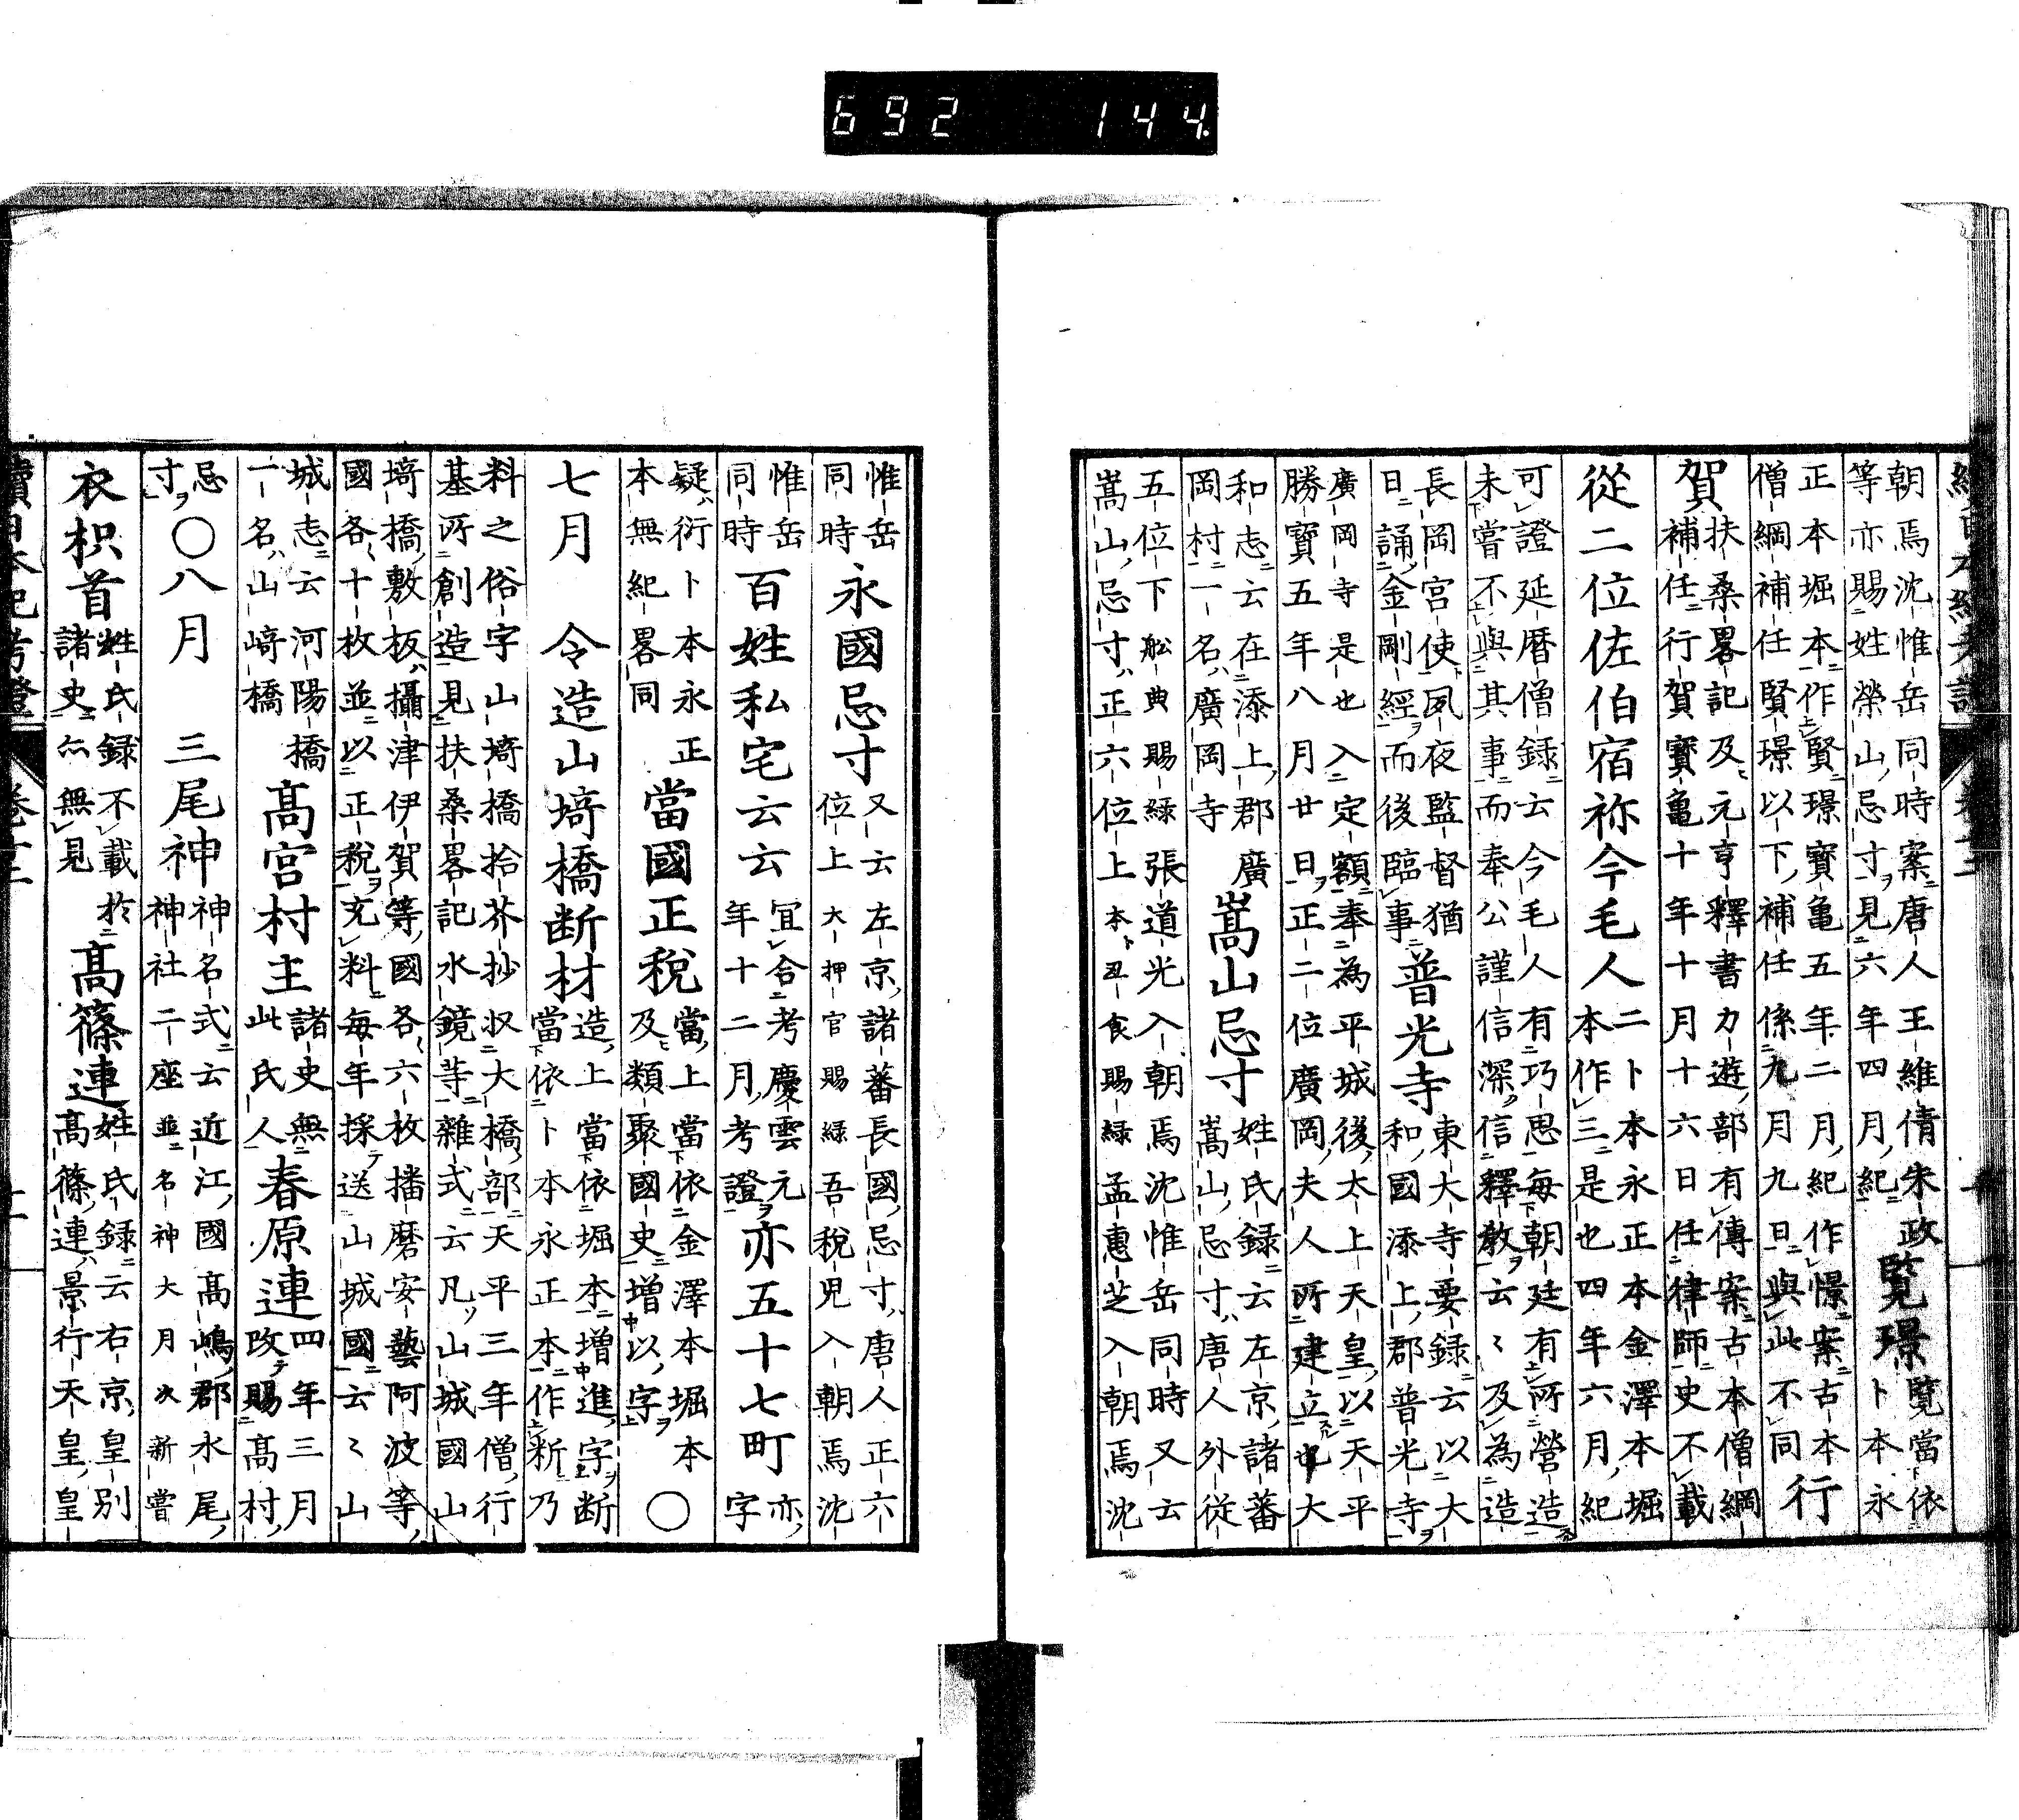 692 144.
朝焉沈惟岳同時案唐人王維倩朱政
等亦賜姓榮山忌寸見六年四月紀
覧璟
覧當依
卜本永
正本堀本作賢璟寶亀五年二月紀作憬案古本
僧綱補任賢璟以下補任係九月九日與此不同
行
賀
扶桑畧記及元亨釋書力遊部有傳案古本僧綱
補任行賀寶亀十年十月十六日任律師史不載
從二位佐伯宿祢今毛人
二卜本永正本金澤本堀
本作三是也四年六月紀
可證延暦僧録云今毛人有巧思毎朝廷有所營造
未嘗不與其事而奉公謹信深信釋教云〻及為造
長岡宮使夙夜監督猶
日誦金剛經而後臨事
普光寺
東大寺要録云以大
和國添上郡普光寺
廣岡寺是也入定額奉為平城後太上天皇以天平
勝寶五年八月廿日正二位廣岡夫人所建立也大
和志云在添上郡廣
岡村一名廣岡寺
嵩山忌寸
姓氏録云左京諸蕃
嵩山忌寸唐人外從
五位下舩典賜緑張道光入朝焉沈惟岳同時又云
嵩山忌寸正六位上本卜丑食賜緑孟惠芝入朝焉沈
惟岳
同時
永國忌寸
又云左京諸蕃長國忌寸唐人正六
位上大押官賜緑吾税兒入朝焉沈
惟岳
同時
百姓私宅云云
宜合考慶雲元
年十二月考證
亦五十七町
亦
字
疑衍卜本永正
本無紀畧同
當國正税
當上當依金澤本堀本
及類聚國史増以字
○
七月
令造山埼橋断材
造上當依堀本増進字断
當依卜本永正本作析乃
料之俗字山埼橋拾芥抄収大橋部天平三年僧行
基所創造見扶桑畧記水鏡等雜式云凡山城國山
埼橋敷板攝津伊賀等國各六枚播磨安藝阿波等
國各十枚並以正税充料毎年採送山城國云〻山
城志云河陽橋
一名山﨑橋
髙宮村主
諸史無
此氏人
春原連
四年三月
改賜髙村
忌
寸
○八月
三尾神
神名式云近江國髙嶋郡水尾
神社二座並名神大月次新嘗
衣枳首
姓氏録不載於
諸史亦無見
髙篠連
姓氏録云右京皇別
髙篠連景行天皇皇